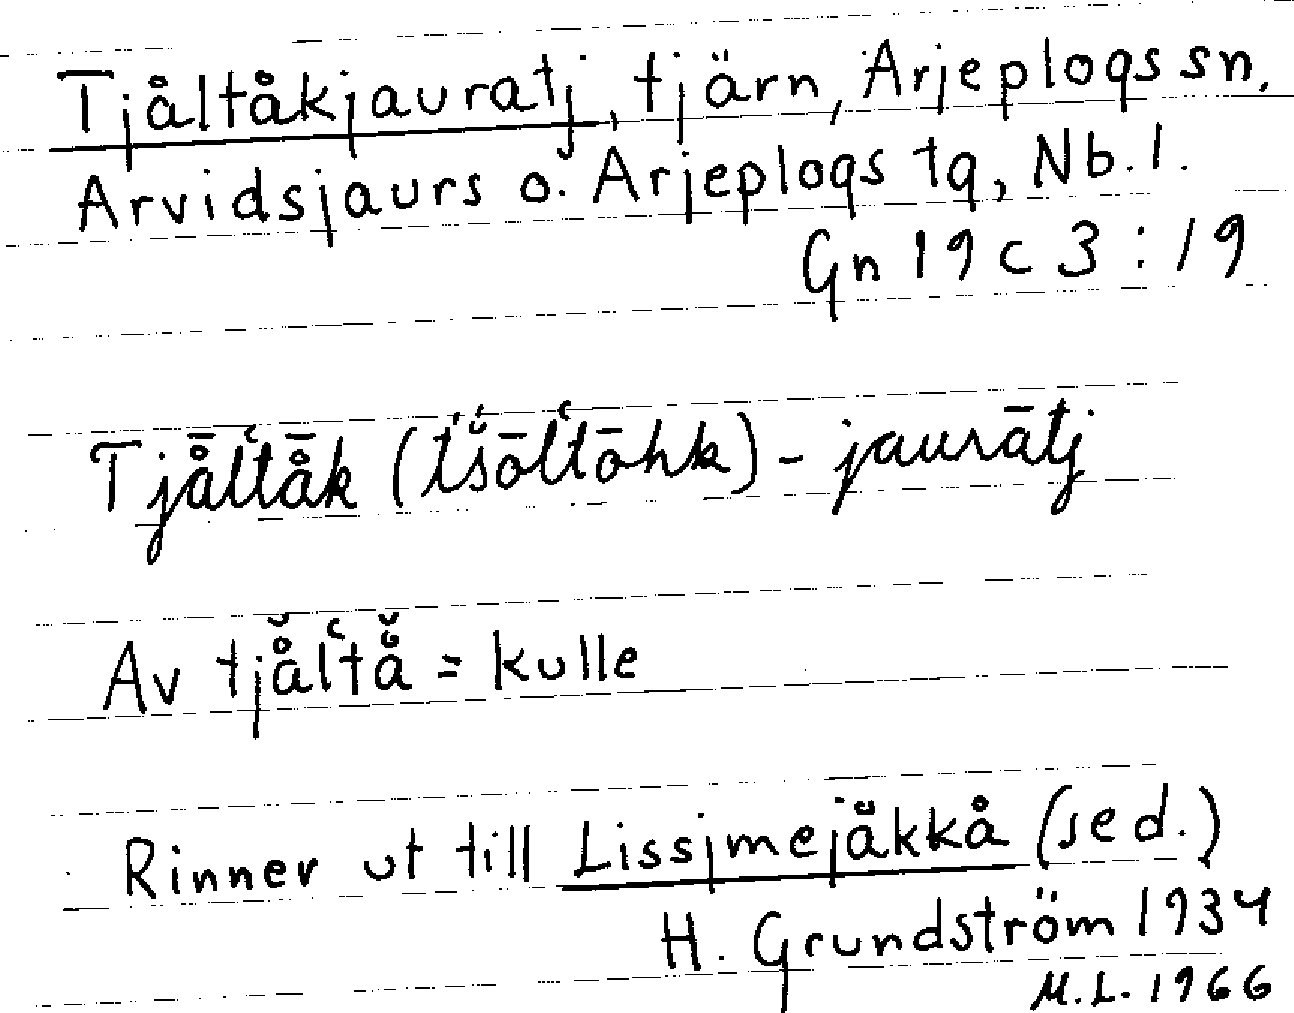 Tjåltåkjauratj, tjärn, Arjeplogs sn,
Arvidsjaurs o. Arjeplogs tg, Nb. l.
Gn 19 c 3 : 19
Tjå̄lʻtå̄k (t́š́ōlʻtōhk) - jaurātj
Av tjå̆lʻtå̆ = kulle
Rinner ut till Lissjmejåkkå (sed.)
H. Grundström 1934
M.L. 1966